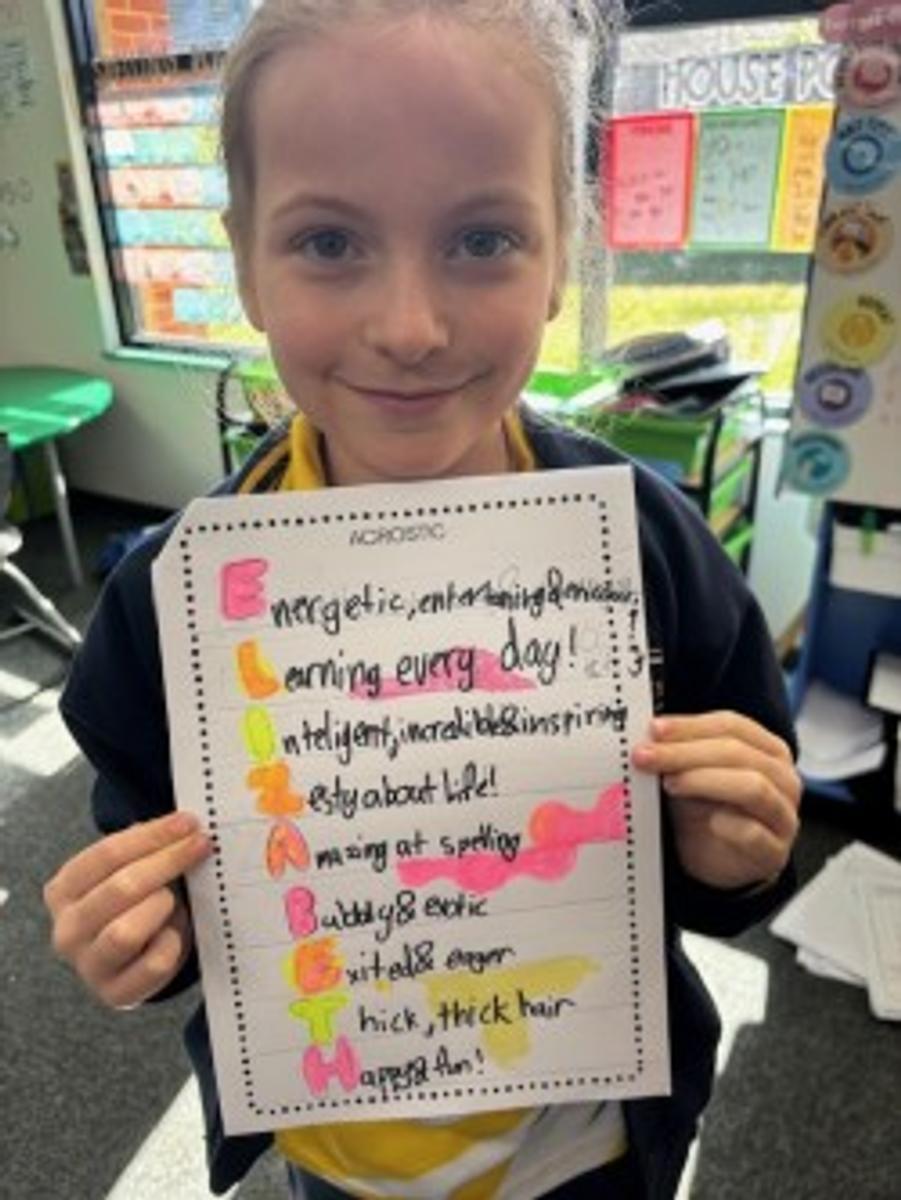 HOUSE PO
ACROSTIC
Energetic, entertaining &
Learning every day!
Inteligent, incredible & inspiring
Zesty about life!
Amazing at spelling
Bubbly & exotic
Exited & eager
Thick, thick hair
Happy & fun!